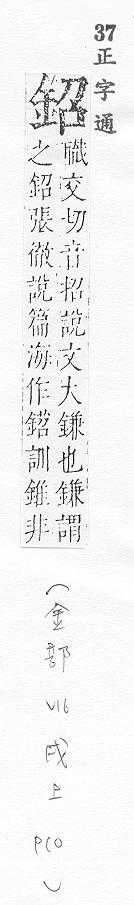 37正字通
鉊
職交切音招說文大鎌也鎌謂
之鉊張徹說篇海作鍣訓錐非
(金部 V16 戌上 P10)